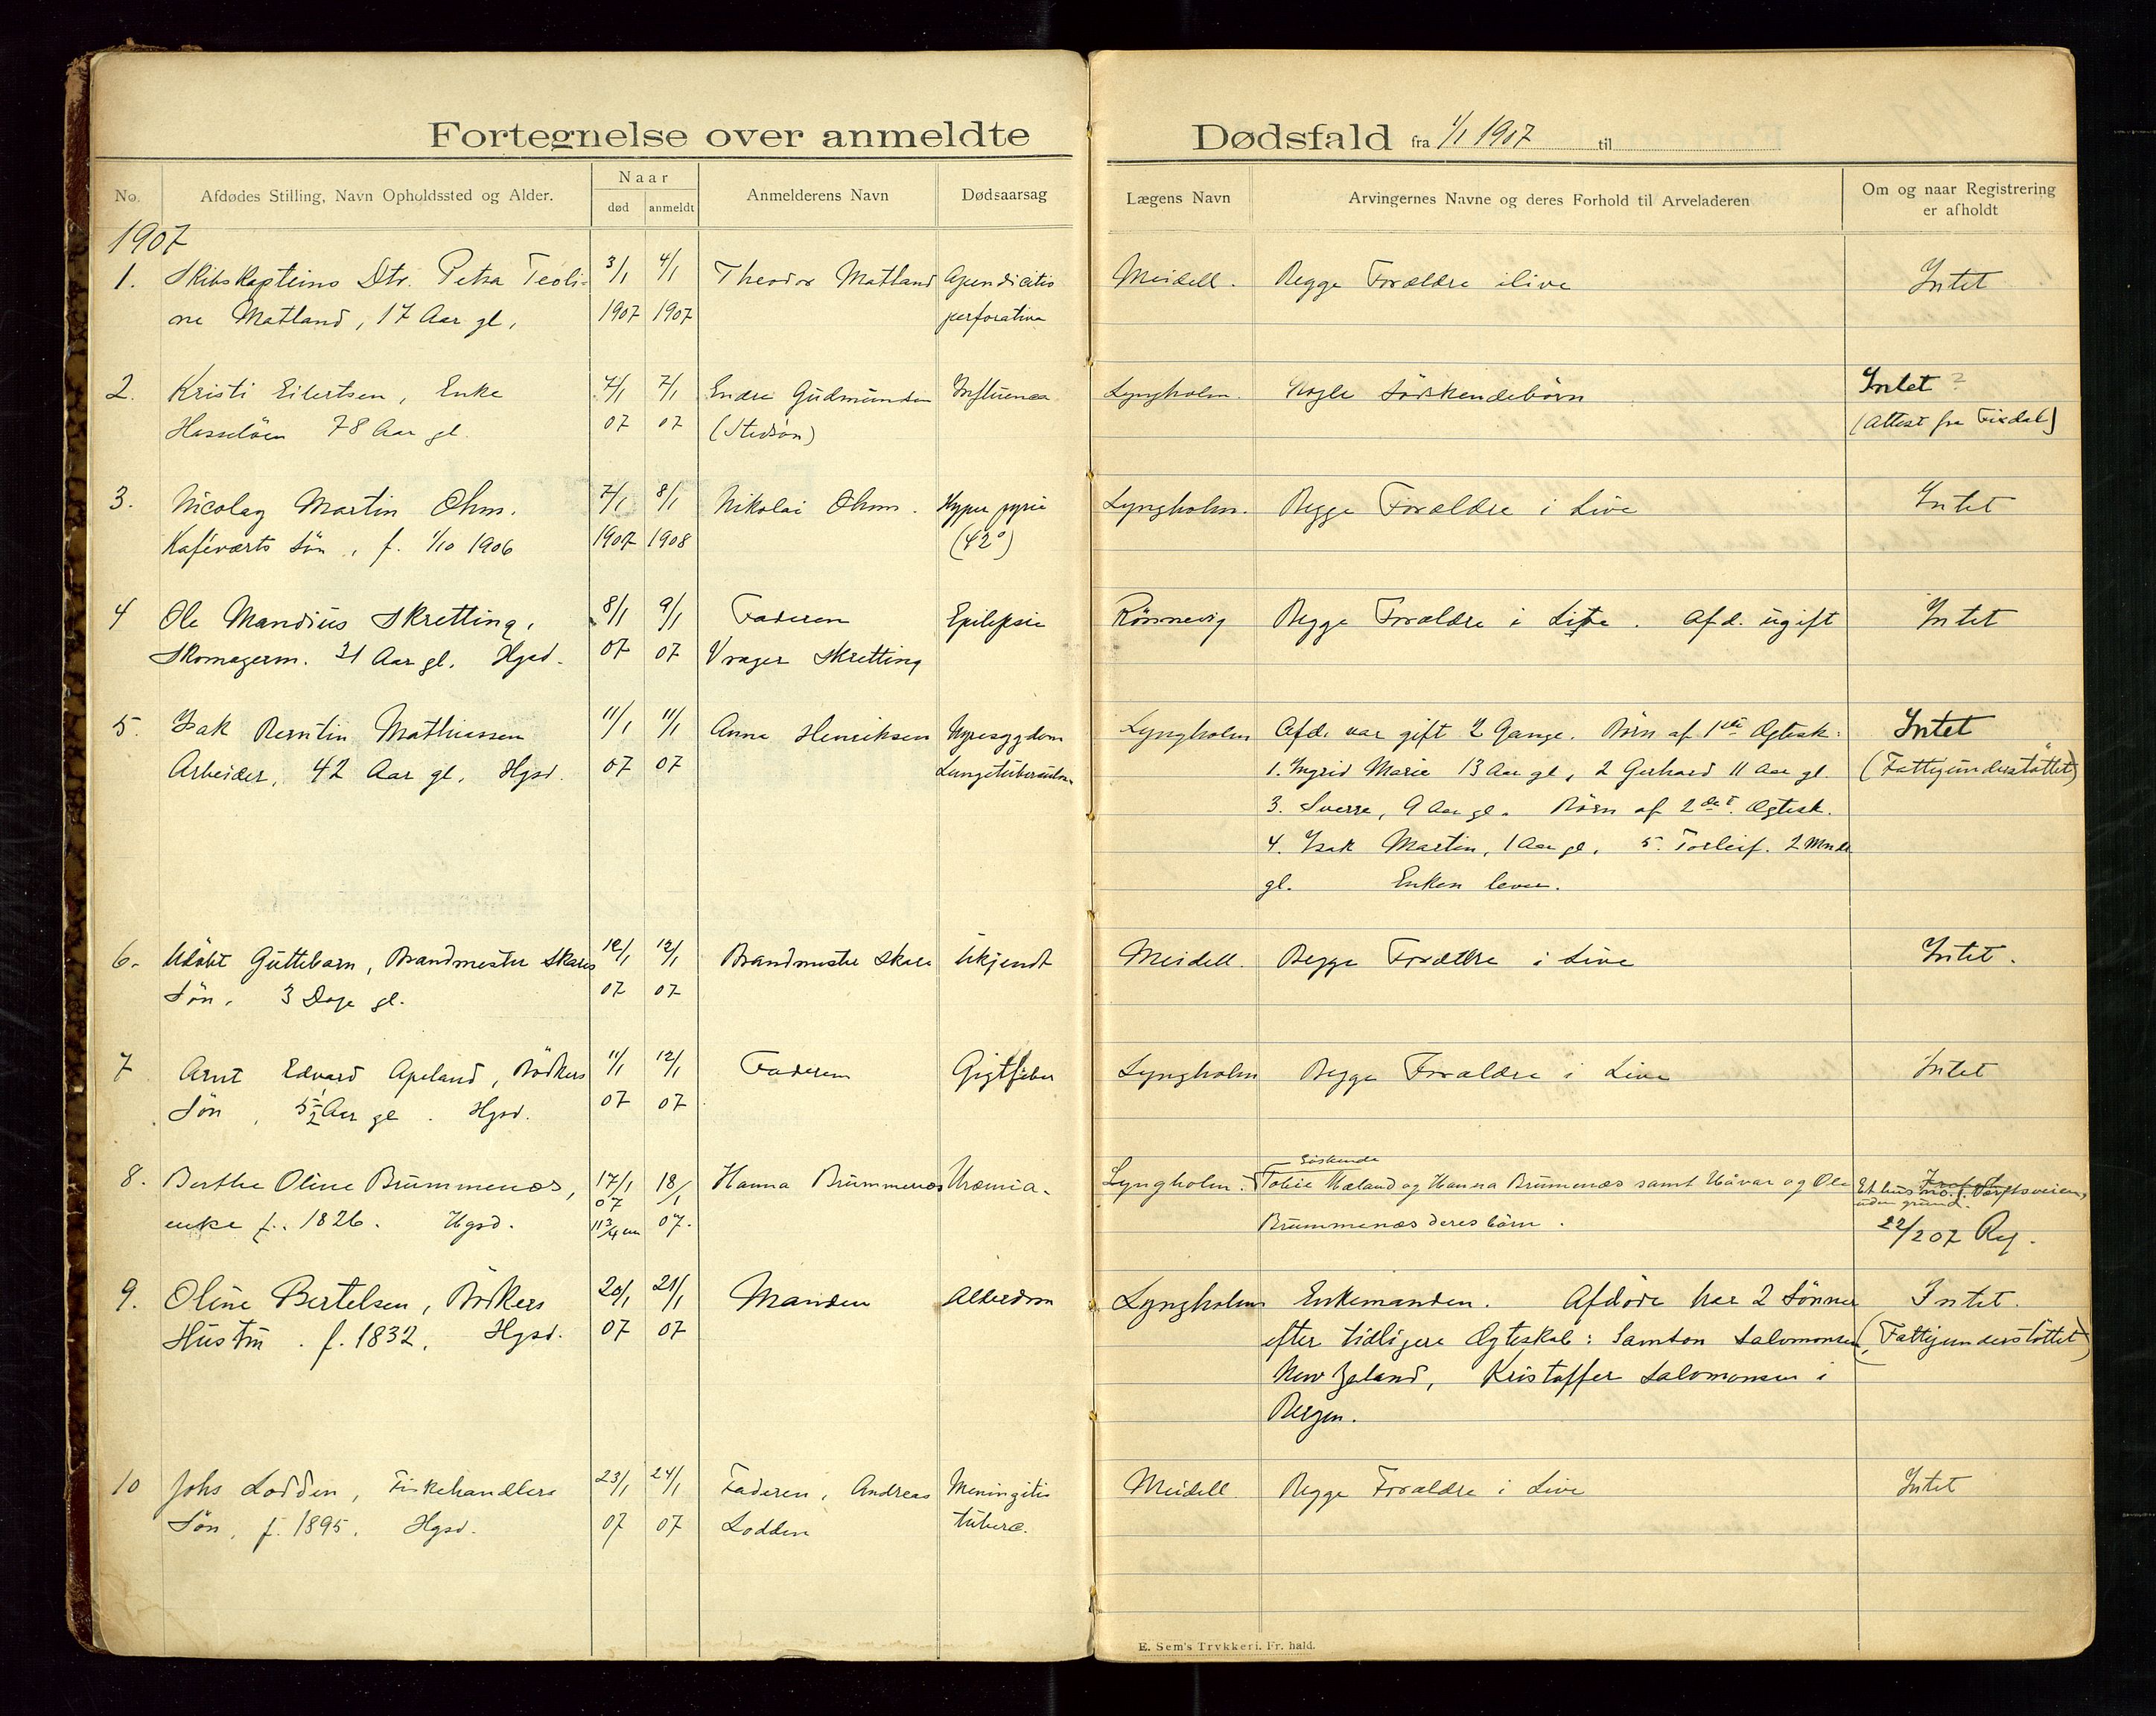 Fortegnelse over anmeldte Dødsfald fra 1/1 1907 til
No.
Afdødes Stilling, Navn Opholdssted og Alder.
Naar
død
anmeldt
Anmelderens Navn
Dødsaarsag
Lægens Navn
Arvingernes Navne og deres Forhold til Arveladeren
Om og naar Registrering
er afholdt
1907
1. Skibskapteins Dtr. Petra Teoli- 3/1 4/1 Theodor Matland Apendicitis Meidell. Begge Forældre ilive Intet
ne Matland, 17 Aar gl, 1907 1907 perforativa
2. Kristi Eilertsen, Enke 7/1 7/1 Endre Gudmundsen Influensa Lyngholm. Nogle Söskendebörn Intet ?
Hasselöen 78 Aar gl. 07 07 (Stedsön) (Attest fra Fisdal)
3. Nicolay Martin Ohm. 7/1 8/1 Nikolai Ohm. Hyper pyrie Lyngholm. Begge Forældre i Live Intet
Kaféværts Sön, f. 1/10 1906 1907 1908 (42°)
4 Ole Mandius Skretting, 8/1 9/1 Faderen Epilepsie Rönnevig Begge Forældre i Live. Afd. ugift Intet
Skomagerm. 31 Aar gl. Hgsd. 07 07 Skretting
5. Isak Berntin Mathiassen 11/1 11/1 Anna Henriksen Nyresygdom Lyngholm Afd. var gift 2 Gange. Börn af 1ste Ægtesk: Intet
Arbeider, 42 Aar gl, Hgsd. 07 07 Lungetuberculose 1. Ingrid Marie 13 Aar gl, 2 Gerhard 11 Aar gl. (Fattigunderstöttet)
3. Sverre, 9 Aar gl. Börn af 2det Ægtesk.
4. Isak Martin, 1 Aar gl, 5. Torleif. 2 Mndr
gl. Enken lever.
6. Udöbt Guttebarn, Brandmester Skares 12/1 12/1 Brandmester Skare Ukjendt Meidell. Begge Forældre i Live Intet.
Sön. 3 Dage gl. 07 07
7 Arnt Edvard Apeland, Bödkers 11/1 12/1 Faderen Gigtfeber Lyngholm Begge Forældre i Live Intet
Sön, 5 1/2 Aar gl. Hgsd. 07 07
Söskende
8. Berthe Oline Brummenæs, 17/1 18/1 Hanna Brummenæs Uræmia. Lyngholm. Tobie Mæland og Hanna Brummenæs samt Håvar og Ole Et hus no. 1 Værftsveien,
uden grund.
enke f. 1826. Hgsd. 07 11 3/4 em 07. Brummenæs deres börn. 22/2 07 Reg.
9. Oline Bertelsen, Bödkers 20/1 21/1 Manden Alderdom Lyngholm Enkemanden. Afdöde har 2 Sönner Intet.
Hustru. f. 1832. Hgsd. 07 07 efter tidligere Ægteskab: Samson Salomonsen, (Fattigunderstöttet)
New Zeland, Kristoffer Salomonsen i
Bergen.
10 Johs Lodden, Fiskehandlers 23/1 24/1 Faderen, Andreas Meningitis Meidell Begge Forældre i Live Intet
Sön, f. 1895. Hgsd. 07 07 Lodden tuberc.
E. Sem's Trykkeri. Fr. hald.